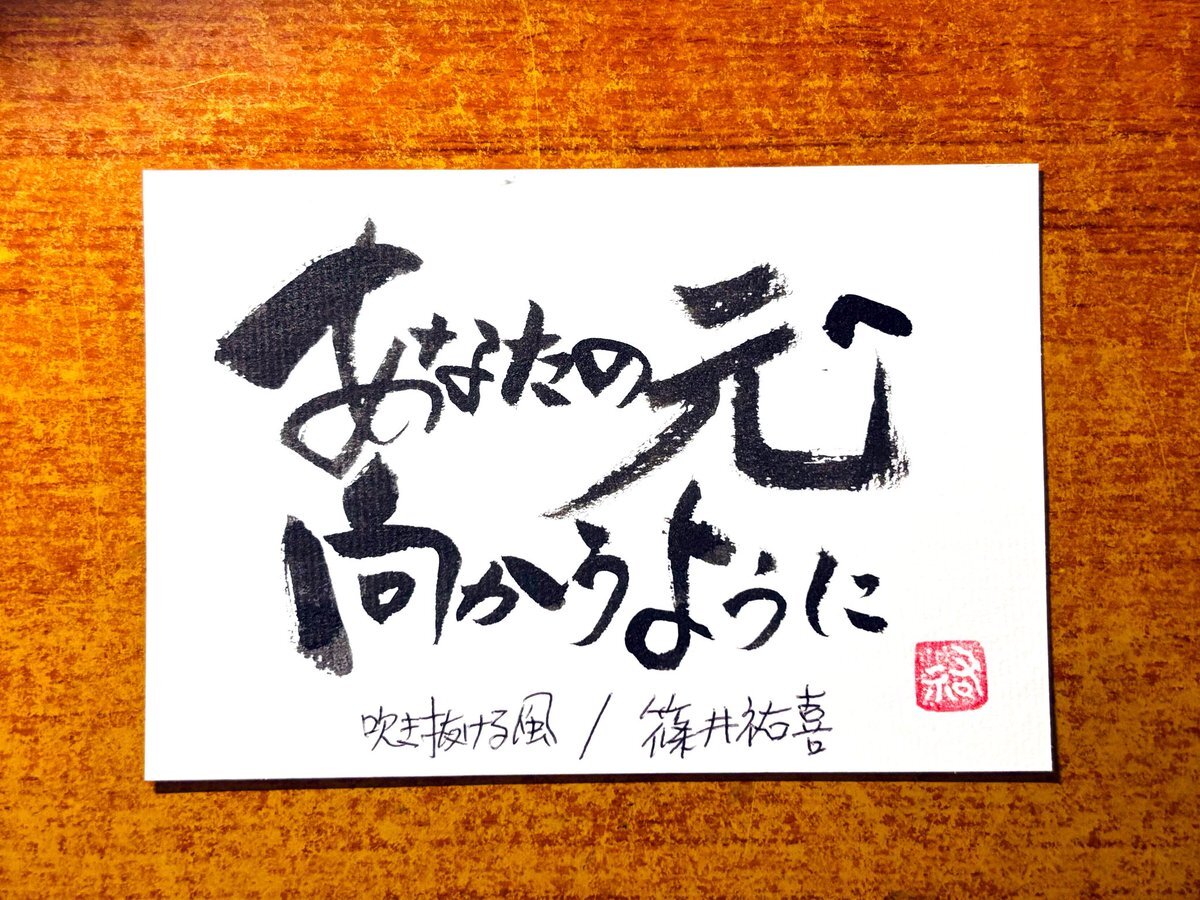 あなたの元へ
向かうように
吹き抜ける風 / 篠井祐喜
祐